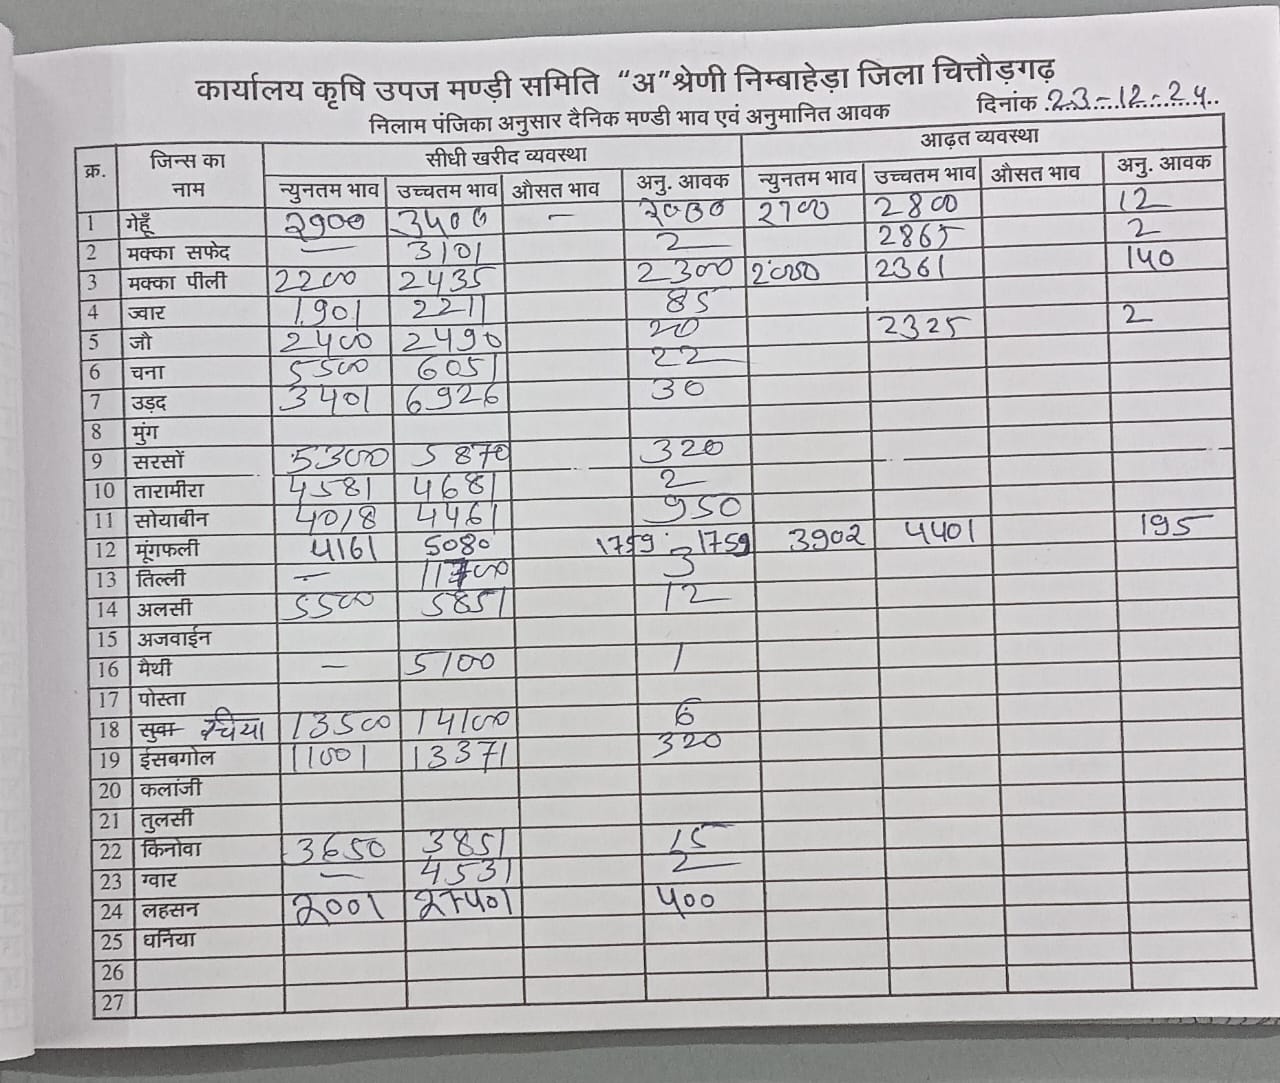 कार्यालय कृषि उपज मण्ड़ी समिति “अ” श्रेणी निम्बाहेड़ा जिला चित्तौड़गढ़
निलाम पंजिका अनुसार दैनिक मण्डी भाव एवं अनुमानित आवक दिनांक 23-12-24
क्र. जिन्स का नाम सीधी खरीद व्यवस्था आढ़त व्यवस्था
न्युनतम भाव उच्चतम भाव औसत भाव अनु. आवक न्युनतम भाव उच्चतम भाव औसत भाव अनु. आवक
1 गेहूँ 2900 3400 - 2700 2800 12
2 मक्का सफेद — 3101 2 2865 2
3 मक्का पीली 2200 2435 2300 2000 2361 140
4 ज्वार 1901 2211 85
5 जौ 2400 2490 20 2325 2
6 चना 5500 6051 22
7 उड़द 3401 6926 30
8 मुंग
9 सरसों 5300 5870 320
10 तारामीरा 4581 4681 2
11 सोयाबीन 4018 4461 950
12 मूंगफली 4161 5080 1759 1759 3902 4401 195
13 तिल्ली — 3
14 अलसी 5500 5851 12
15 अजवाईन
16 मैथी — 5100 1
17 पोस्ता
18 सुवा चिया 13500 14100 6
19 ईसबगोल 11001 13371 320
20 कलांजी
21 तुलसी
22 किनोवा 3650 3851 15
23 ग्वार — 4531 2
24 लहसन 2001 27401 400
25 धनिया
26
27